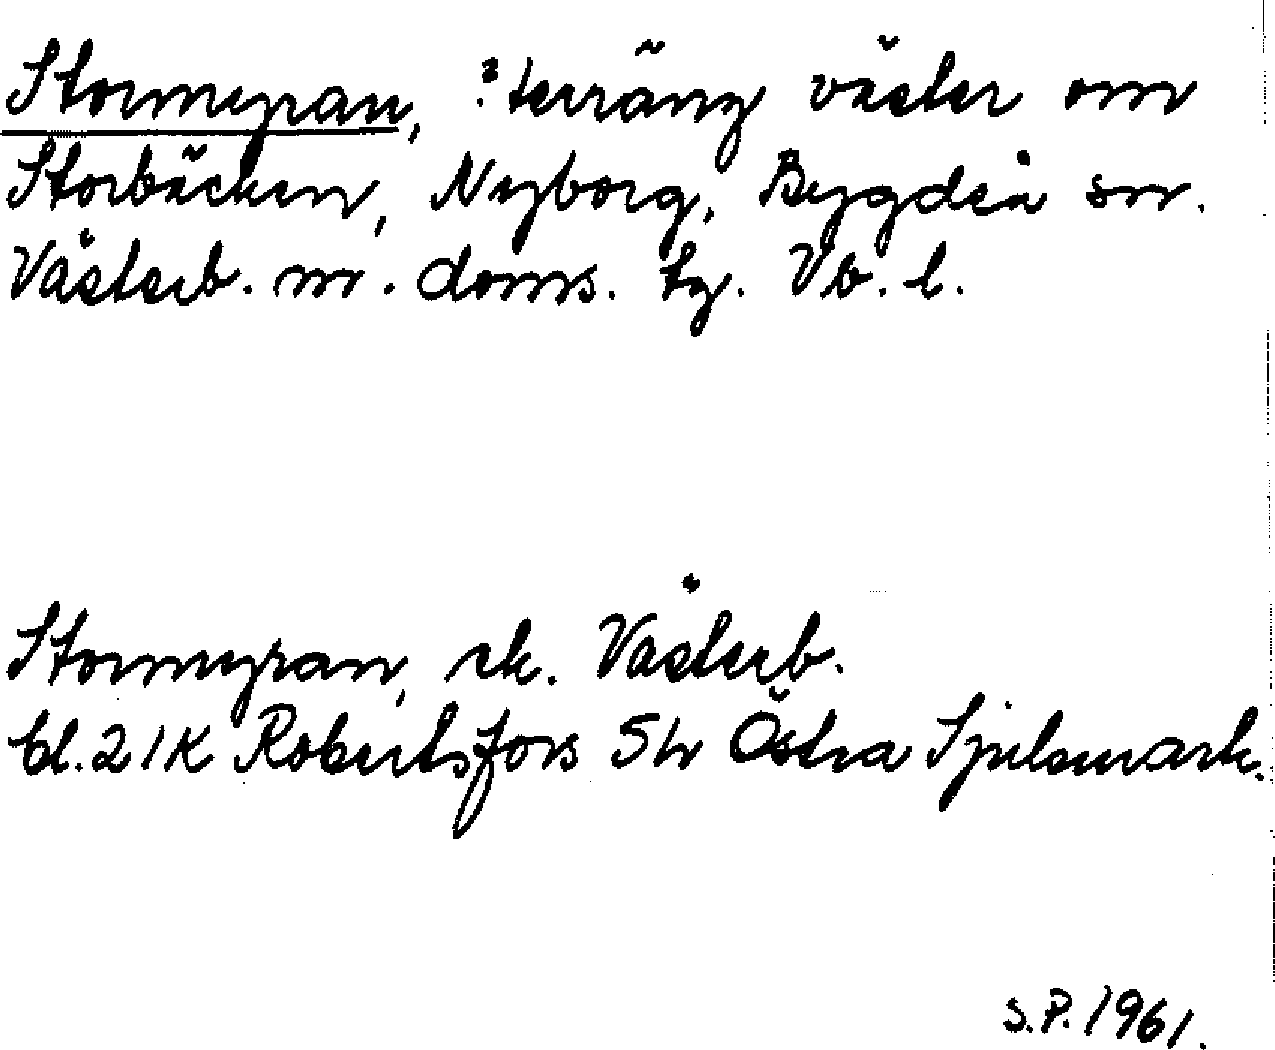 Stormyran, : terräng väster om
Storbäcken, Nyborg, Bygdeå sn.
Västerb. nr. doms. tg. Vb. l.
Stormyran, ek. Västerb.
bl. 21K Robertsfors 5h Östra Sjulsmark.
S.P. 1961.